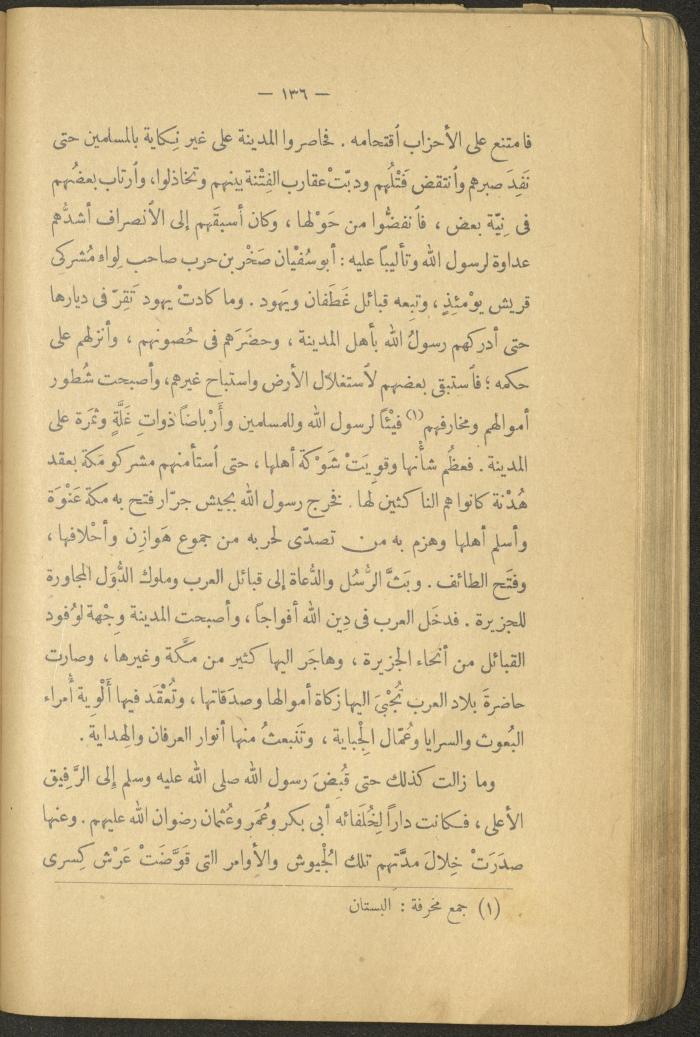 — ١٣٦ —
فامتنع على الأحزاب ٱقتحامه . فحاصروا المدينة على غير نِكاية بالمسلمين حتى
نَفِدَ صبرهم وٱنتقض فَتْلُهم ودبّتْ عقارب الفِتْنة بينهم وتخاذلوا، وٱرتاب بعضُهم
فى نِيّة بعض ، فٱنفضُّوا من حَوْلها ، وكان أسبقَهم إلى الٱنصراف أشدُّهم
عداوة لرسول الله وتأليبًا عليه : أبو سُفْيان صَخْر بن حرب صاحب لِواء مُشركى
قريش يوْمئِذٍ ، وتبِعه قبائل غَطَفان ويَهود . وما كادتْ يهود تَقِرّ فى ديارها
حتى أدركهم رسولُ الله بأهل المدينة ، وحضَرَهم فى حُصونهم ، وأنزلهم على
حكمه ؛ فٱستبقى بعضهم لٱستغلال الأرض واستباح غيرهم، وأصبحت شُطور
أموالهم ومخارفهم(١) فيْئًا لرسول الله وللمسلمين وأَرْباضًا ذواتِ غَلَّةٍ وثمَرة على
المدينة . فعظُم شأنها وقوِيَتْ شَوْكة أهلها ، حتى ٱستأمنهم مشركو مَكة بعقد
هُدْنة كانوا هم الناكثين لها . فخرج رسول الله بجيش جرّار فتح به مكة عَنْوَة
وأسلم أهلها وهزم به من تصدّى لحربه من جموع هَوازِن وأحْلافها ،
وفتَح الطائف . وبَثَّ الرُّسُل والدُّعاة إلى قبائل العرب وملوك الدُّوَل المجاورة
للجزيرة . فدخَل العرب فى دِين الله أفواجًا ، وأصبحت المدينة وِجْهة لوُفود
القبائل من أنحاء الجزيرة ، وهاجَر اليها كثير من مكّة وغيرها ، وصارت
حاضرةَ بلاد العرب تُجْبَىٰ اليها زكاة أموالها وصدَقاتها ، وتُعْقَد فيها أَلْوِية أُمراء
البُعوث والسرايا وعُمّال الجْباية ، وتَنبعثُ منها أنوار العرفان والهداية .
وما زالت كذلك حتى قُبِضَ رسول الله صلى الله عليه وسلم إلى الرَّفيق
الأعلى ، فكانت دارًا لِخُلَفائه أبى بكر وعُمَر وعُثمان رضوان الله عليهم . وعنها
صدَرَتْ خِلالَ مدّتهم تلك الجُيوش والأوامر التى قَوَّضَتْ عَرْش كِسرى
(١) جمع مخرفة : البستان